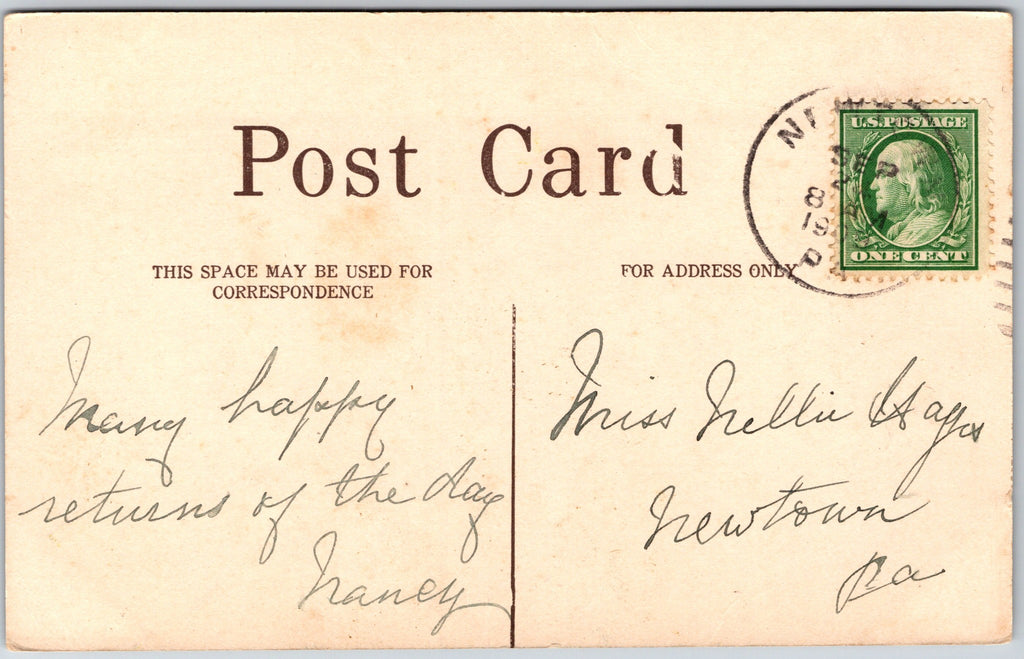 Post Card
THIS SPACE MAY BE USED FOR
CORRESPONDENCE
FOR ADDRESS ONLY
U.S. POSTAGE
ONE CENT
8
PA
Many happy
returns of the day
Nancy
Miss Nellie Hayes
Newtown
Pa